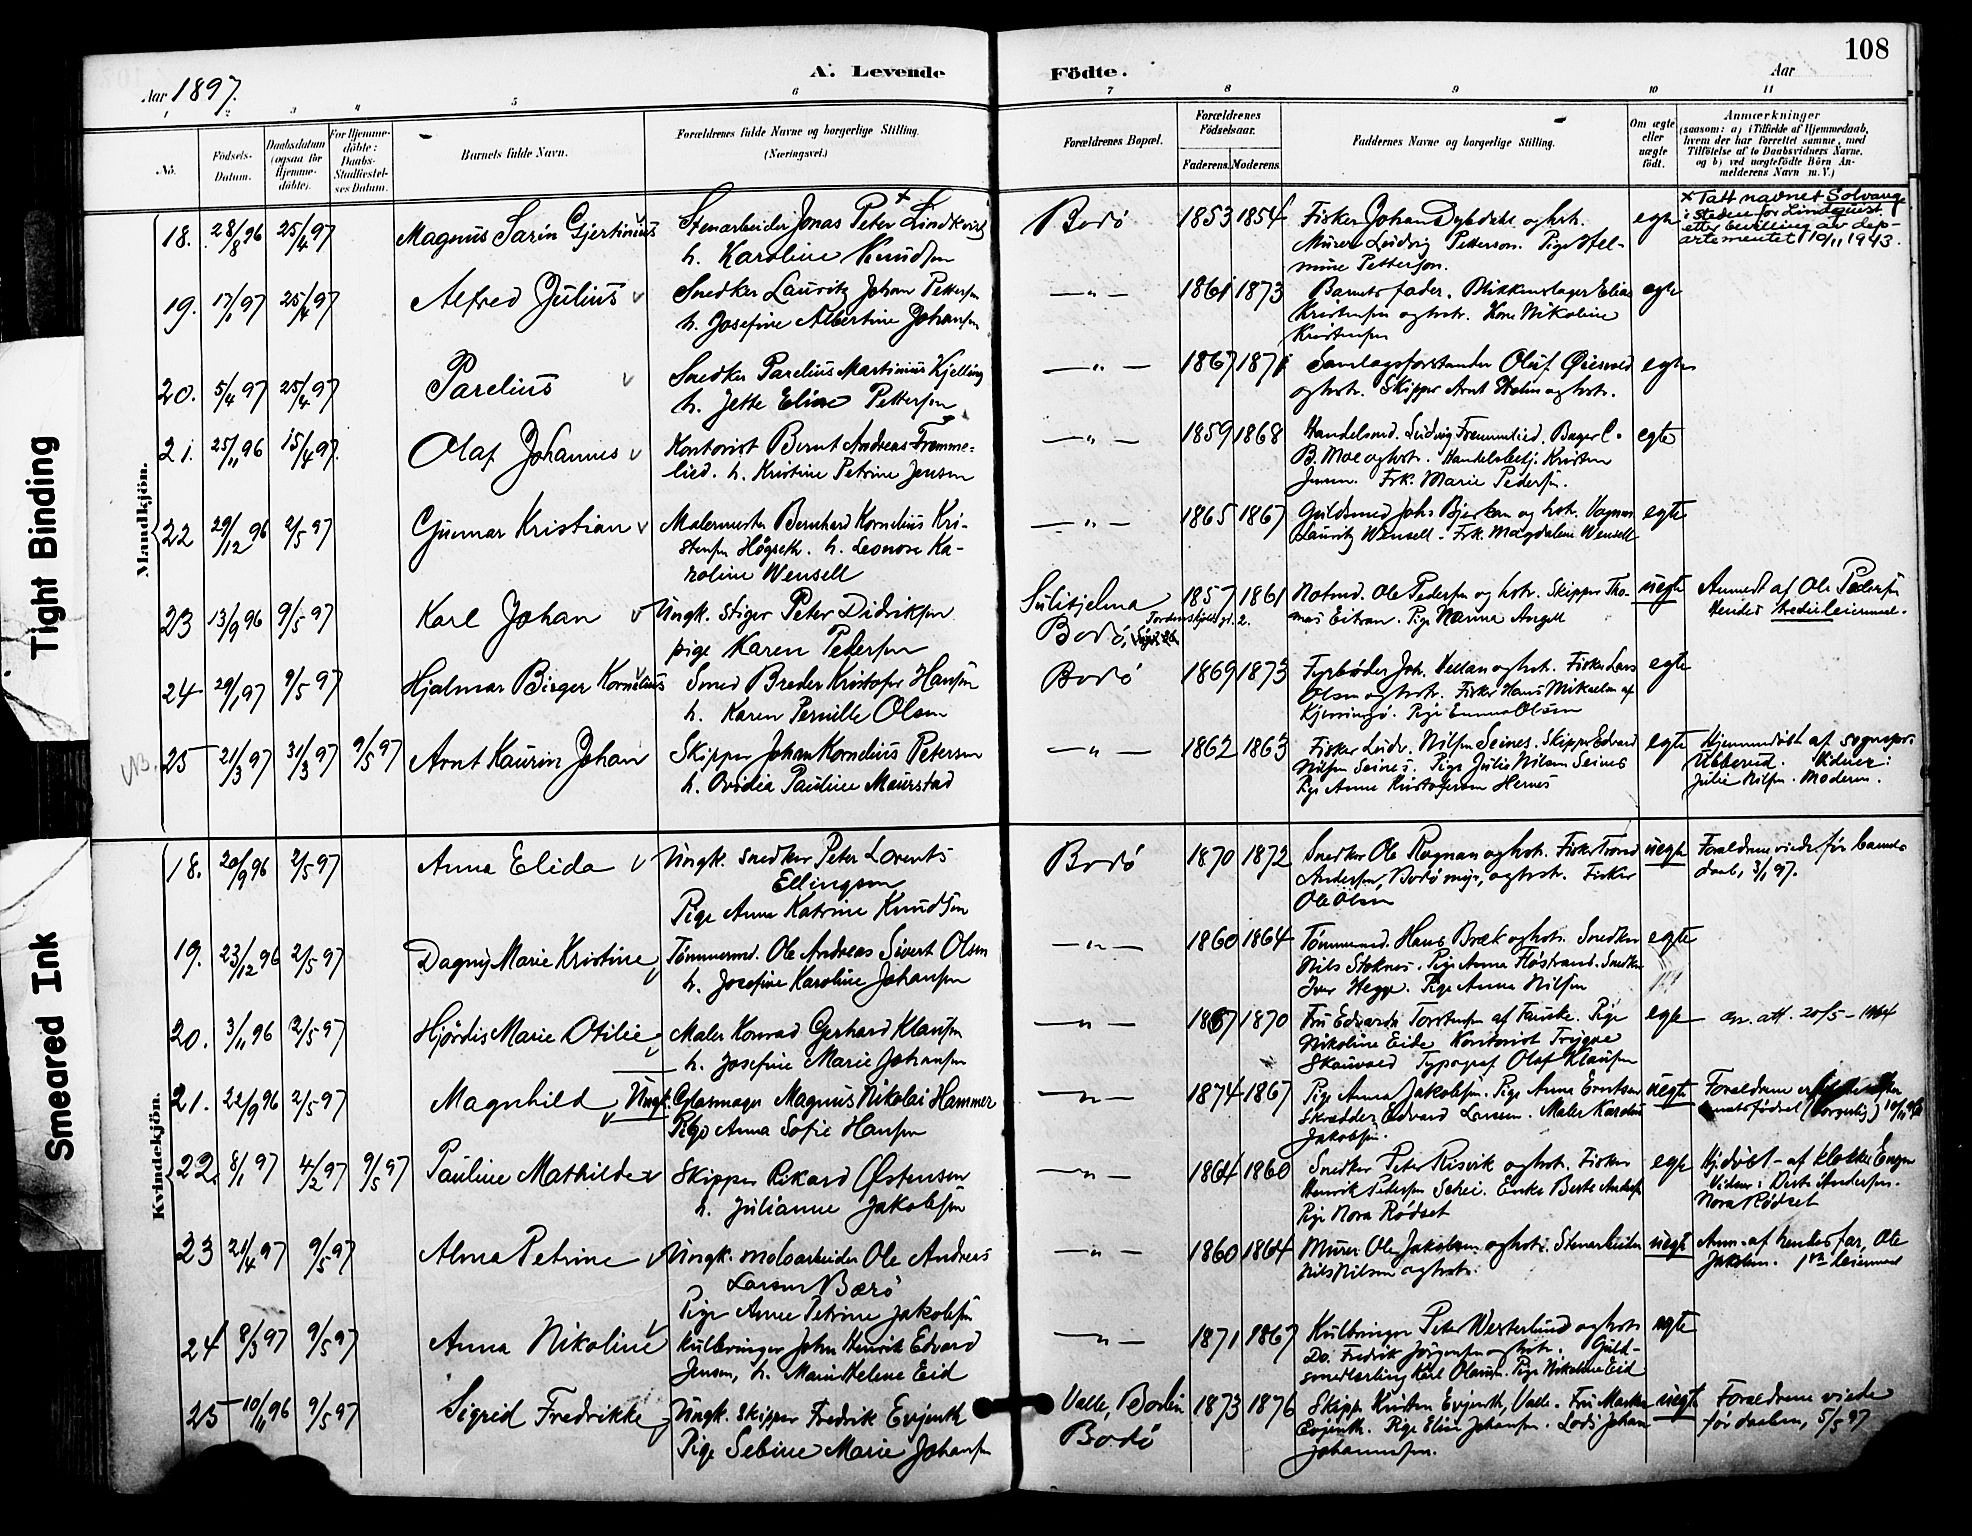 108
A. Levende Födte.
Aar 1897.
Aar
1 2 3 4 5 6 7 8 9 10 11
No.
Födsels-Datum.
Daabsdatum (ogsaa for Hjemme-döbte).
For Hjemme-döbte: Daabs-Stadfæstel-ses Datum.
Barnets fulde Navn.
Forældrenes fulde Navne og borgerlige Stilling.
(Næringsvei.)
Forældrenes Bopæl.
Forældrenes Födselsaar.
Faderens. Moderens.
Faddernes Navne og borgerlige Stilling.
Om ægte eller uægte födt.
Anmærkninger
(saasom: a) i Tilfælde af Hjemmedaab, hvem der har forrettet samme, med Tilföielse af to Daabsvidners Navne, og b) ved uægtefödte Börn An-melderens Navn m. V.)
Tight Binding
Smeared Ink
Mandkjön.
18. 28/8 96 25/4 97 Magnus Sarin Gjertinius Stenarbeider Jonas Peter × Lindkvist
h. Karoline Knudsen
Bodö 1853 1854 Fisker Johan Dybdahl og hst.
Murer Ludvig Petterson. Pige Hel-
mine Petterson. egte
× Tatt navnet Solvang
i steden for Lindquist
etter bevilling av dep-
artementet 10/11 1943.
19. 17/1 97 25/4 97 Alfred Julius Snedker Lauritz Johan Pettersen
h. Josefine Albertine Johansen
—"— 1861 1873 Barnets fader. Blikkenslager Elias
Kristensen og hst. Kone Nikoline
Kristensen egte
20. 5/4 97 25/4 97 Parelius Snedker Parelius Martinius Kjelling
h. Jette Eline Pettersen
—"— 1867 1871 Samlagsforstander Oluf
og hst. Skipper Arnt Holm og hst. egte
21. 25/11 96 15/4 97. Olaf Johannes Kontorist Bernt Andreas Fremme-
lied. h. Kristine Petrine Jensen
—"— 1859 1868 Handelsmd. Ludvig Fremmelied. Bager C.
B. Moe og hst. Handelsbetj. Kristen
Jensen. Frk. Marie Pedersen. egte
22 29/12 96 2/5 97 Gunnar Kristian Malermester Bernhard Kornelius Kri-
stensen Högseth. h. Leonore Ka-
roline Wensell
—"— 1865 1867 Guldsmed Johs Bjerkan og hst. Vognm.
Lauritz Wensell. Frk. Magdalene Wensell egte
23 13/9 96 9/5 97 Karl Johan Ungk. Stiger Peter Didriksen
pige Karen Pedersen
Sulitjelma
Bodö, Tordenskjolds gt. 2.
1857 1861 Notmd. Ole Pedersen og hst. Skipper Tho-
mas Eitran. Pige Nanna Angell uegte
Anmeldt af Ole Pedersen
Hendes tredie leiermaal.
24 29/1 97 9/5 97 Hjalmar Birger Kornelius Smed Breder Kristofer Hansen
h. Karen Pernille Olsen
Bodö 1869 1873 Fyrböder Joh. Vellan og hst. Fisker Lars
Olsen og hst. Fisker Hans Mikaelsen af
Kjerringö. Pige Emma Olsen egte
NB. 25 21/3 97 31/3 97 9/5 97 Arnt Kaurin Johan Skipper Johan Kornelius Peterson
h. Ovidia Pauline Maurstad
—"— 1862 1863 Fisker Ludv. Nilsen Seines. Skipper Edvard
Nilsen Seines. Pige Julie Nilsen Seines
Pige Anne Kristofersen Hernes egte
Hjemmedöbt af sognepr.
Ubberud. Vidner:
Julie Nilsen. Moderen.
Kvindekjön.
18. 20/9 96 2/5 97 Anna Elida Ungk. Snedker Peter Lorents
Ellingsen
Pige Anne Katrine Knudsen
Bodö 1870 1872 Snedker Ole Rognan og hst. Fisker Trond
Andersen, Bodömyr, og hst. Fisker
Ole Olsen uegte
Foraeldrene viede för barnets
daab, 3/1 97.
19. 23/12 96 2/5 97 Dagny Marie Kristine Tömmermd. Ole Andreas Sivert Olsen
h. Josefine Karoline Johansen
—"— 1860 1864 Tömmermd. Hans Bræk og hst. Snedker
Nils Stoknes. Pige Anna Flöstrand. Snedker
Iver Hegge. Pige Anna Nilsen egte
20. 3/11 96 2/5 97 Hjördis Marie Otilie Maler Konrad Gerhard Klausen
h. Josefine Marie Johansen
—"— 1867 1870 Fru Edvarda Torstensen af Fauske. Pige
Nikoline Eide Kontorist Trygve
Skauvold Typograf Olaf Klausen egte
att. 20/5 - 1964
21. 22/9 96 2/5 97 Magnhild Ungk. Glasmager Magnus Nikolai Hammer
Pige Anna Sofie Hansen
—"— 1874 1867 Pige Anna Jakobsen. Pige Anna Evertsen
Skrædder Edvard Larsen. Maler Karelius
Jakobsen. uegte
Foraeldrene
(borgerlig)
22. 8/1 97 4/2 97 9/5 97 Pauline Mathilde Skipper Rikard Östensen
h. Julianne Jakobsen
—"— 1864 1860 Snedker Peter Risvik og hst. Fisker
Henrik Pedersen Schei. Enke Berte Andersen
Pige Nora Rödset egte
Hj.döbt af klokker Engen
Vidner: Berte Andersen.
Nora Rödset
23 21/4 97 9/5 97 Alma Petrine Ungk. moloarbeider Ole Andreas
Larsen Bærö
Pige Anne Petrine Jakobsen
—"— 1860 1864 Murer Ole Jakobsen og hst. Stenarbeider
Nils Nilsen og hst. uegte
Anm. af hendes far, Ole
Jakobsen. 1ste leiermaal
24 8/3 97 9/5 97 Anna Nikoline Kulbringer John Henrik Edvard
Jensen, h. Marie Helene Eid
—"— 1871 1867 Kulbringer Peter Westerlund og hst.
Do. Fredrik Jörgensen og hst. Guld-
smedlærling Karl Olausen. Pige Nikoline Eid egte
25 10/11 96 9/5 97 Sigrid Fredrikke Ungk. Skipper Fredrik Evjenth
Pige Sebine Marie Johansen
Valle, Bodin
Bodö
1873 1876 Skipp. Kristen Evjenth, Valle. Fru Marken
Evjenth. Pige Elise Johansen. Lods Johan
Johannesen. uegte
Foraeldrene viede
för daaben, 5/5 97